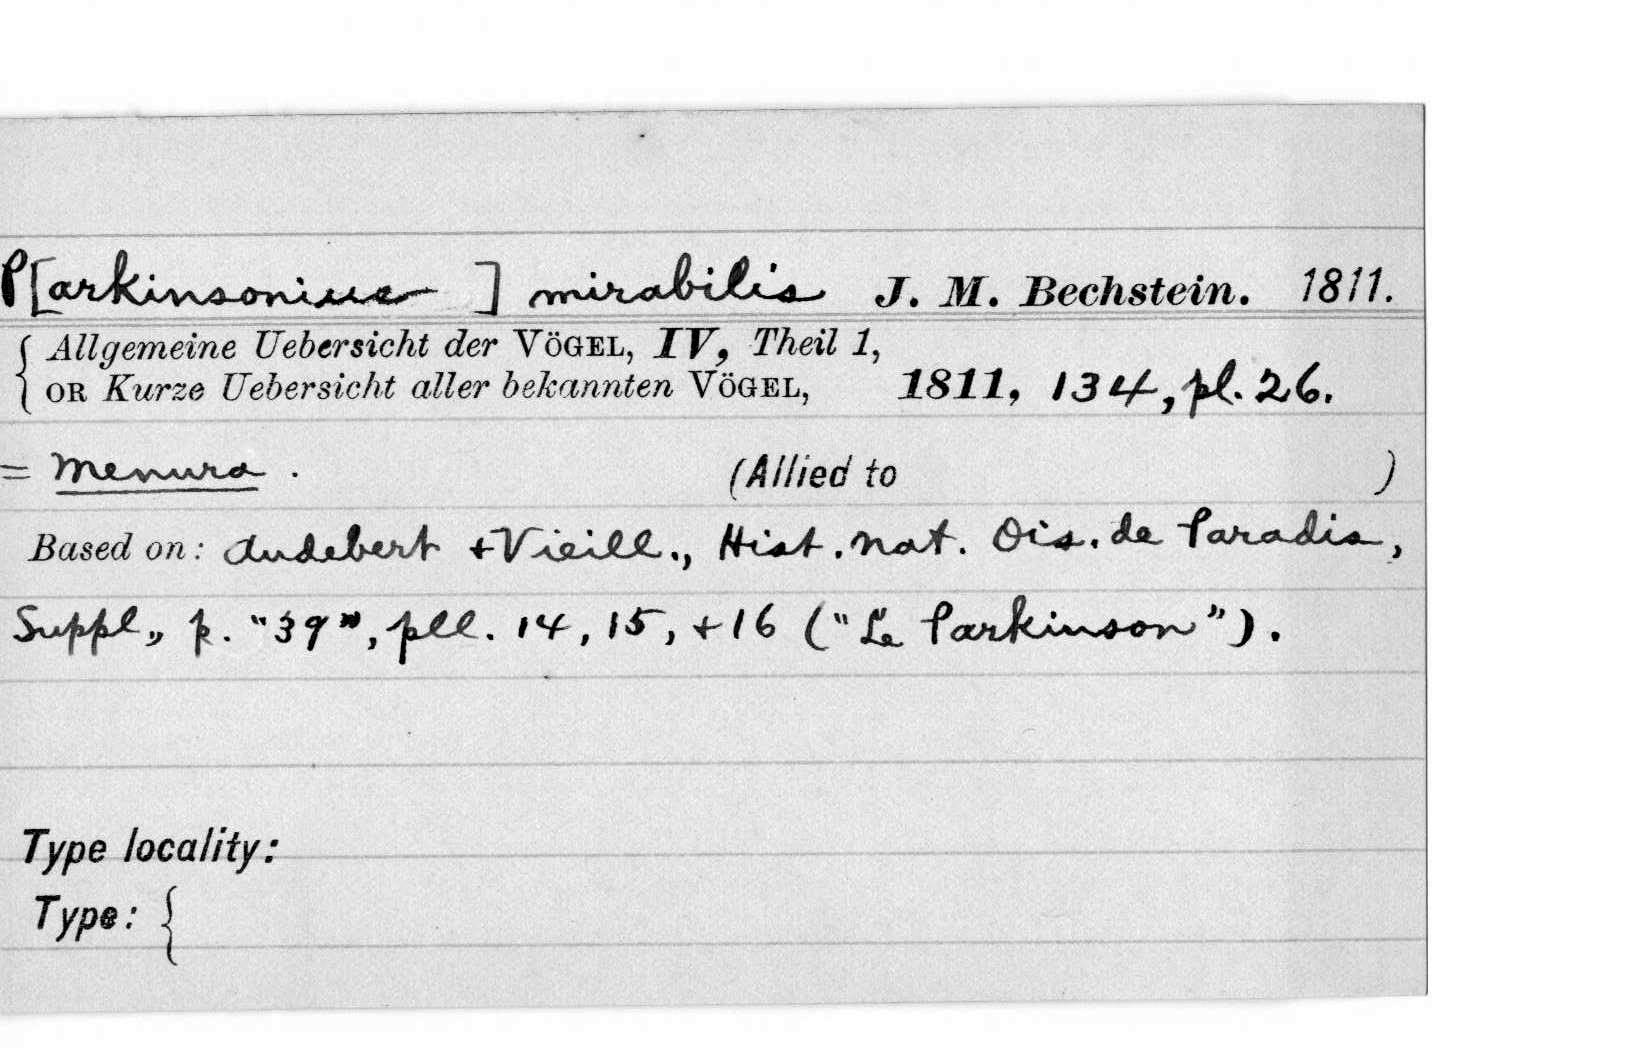 P[arkinsonius ] mirabilis J. M. Bechstein. 1811.
{ Allgemeine Uebersicht der VÖGEL, IV, Theil 1,
OR Kurze Uebersicht aller bekannten VÖGEL, 1811, 134, pl. 26.
= Menura . (Allied to )
Based on: Audebert + Vieill., Hist. nat. Ois. de Paradis,
Suppl., p. "39", pll. 14, 15, + 16 ("Le Parkinson").
Type locality:
Type: {